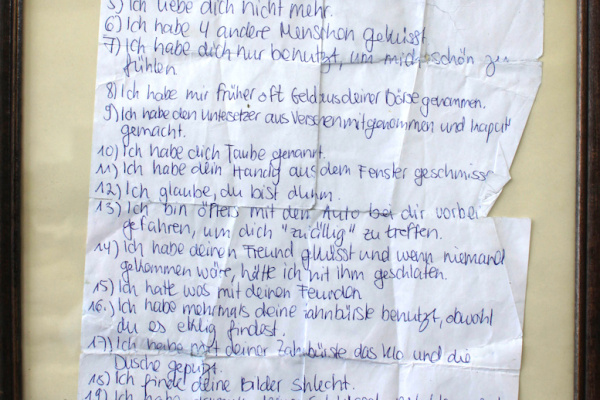 5) Ich liebe dich nicht mehr.
6) Ich habe 4 andere Menschen geküsst
7) Ich habe dich nur benutzt, um mich schön zu
fühlen.
8) Ich habe mir früher oft Geld aus deiner Börse genommen.
9) Ich habe den Untesetzer aus Versehen mitgenommen und kaputt
gemacht.
10) Ich habe dich Taube genannt.
11) Ich habe dein Handy aus dem Fenster geschmiss
12) Ich glaube, du bist dumm.
13) Ich bin öfters mit den Auto bei dir vorbei
gefahren, um dich "zufällig" zu treffen.
14) Ich habe deinen Freund geküsst und wenn niemand
gekommen wäre, hätte ich mit ihm geschlafen.
15) Ich hatte was mit deinen
16.) Ich habe mehrmals deine Zahnbürste benutzt, obwohl
du es eklig findest.
17) Ich habe mit deiner Zahnbürste das Klo und die
Dusche geputzt.
18) Ich finde deine Bilder shlecht.
19) Ich habe